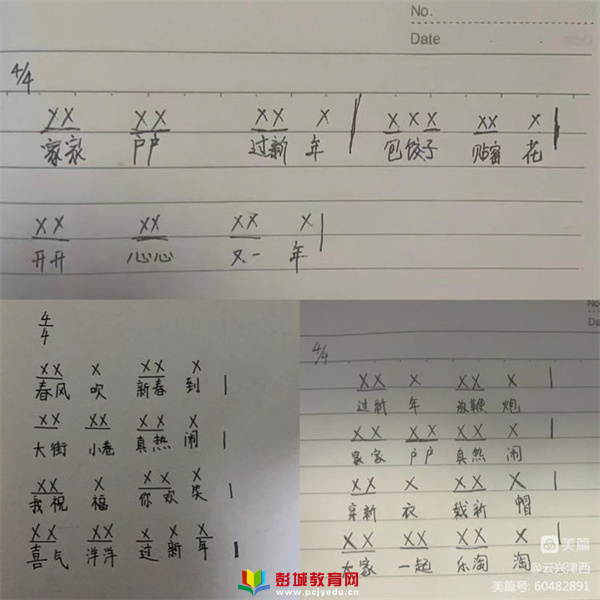 No.
Date
4/4
X X X X X X X X X X X X X
家家 户户 过新 年 包饺子 贴窗 花
X X X X X X X
开开 心心 又一 年
4/4
X X X X X X
春风 吹 新春 到
X X X X X X X
大街 小巷 真热 闹
X X X X X X
我祝 福 你欢 笑
X X X X X X X X
喜气 洋洋 过新年
4/4
X X X X X X
过新 年 放鞭 炮
X X X X X X X
家家 户户 真热 闹
X X X X X X
穿新 衣 戴新 帽
X X X X X X X
大家 一起 乐淘 淘
美篇
@云兴津西
美篇号: 60482891
彭城教育网
www.pcjyedu.cn